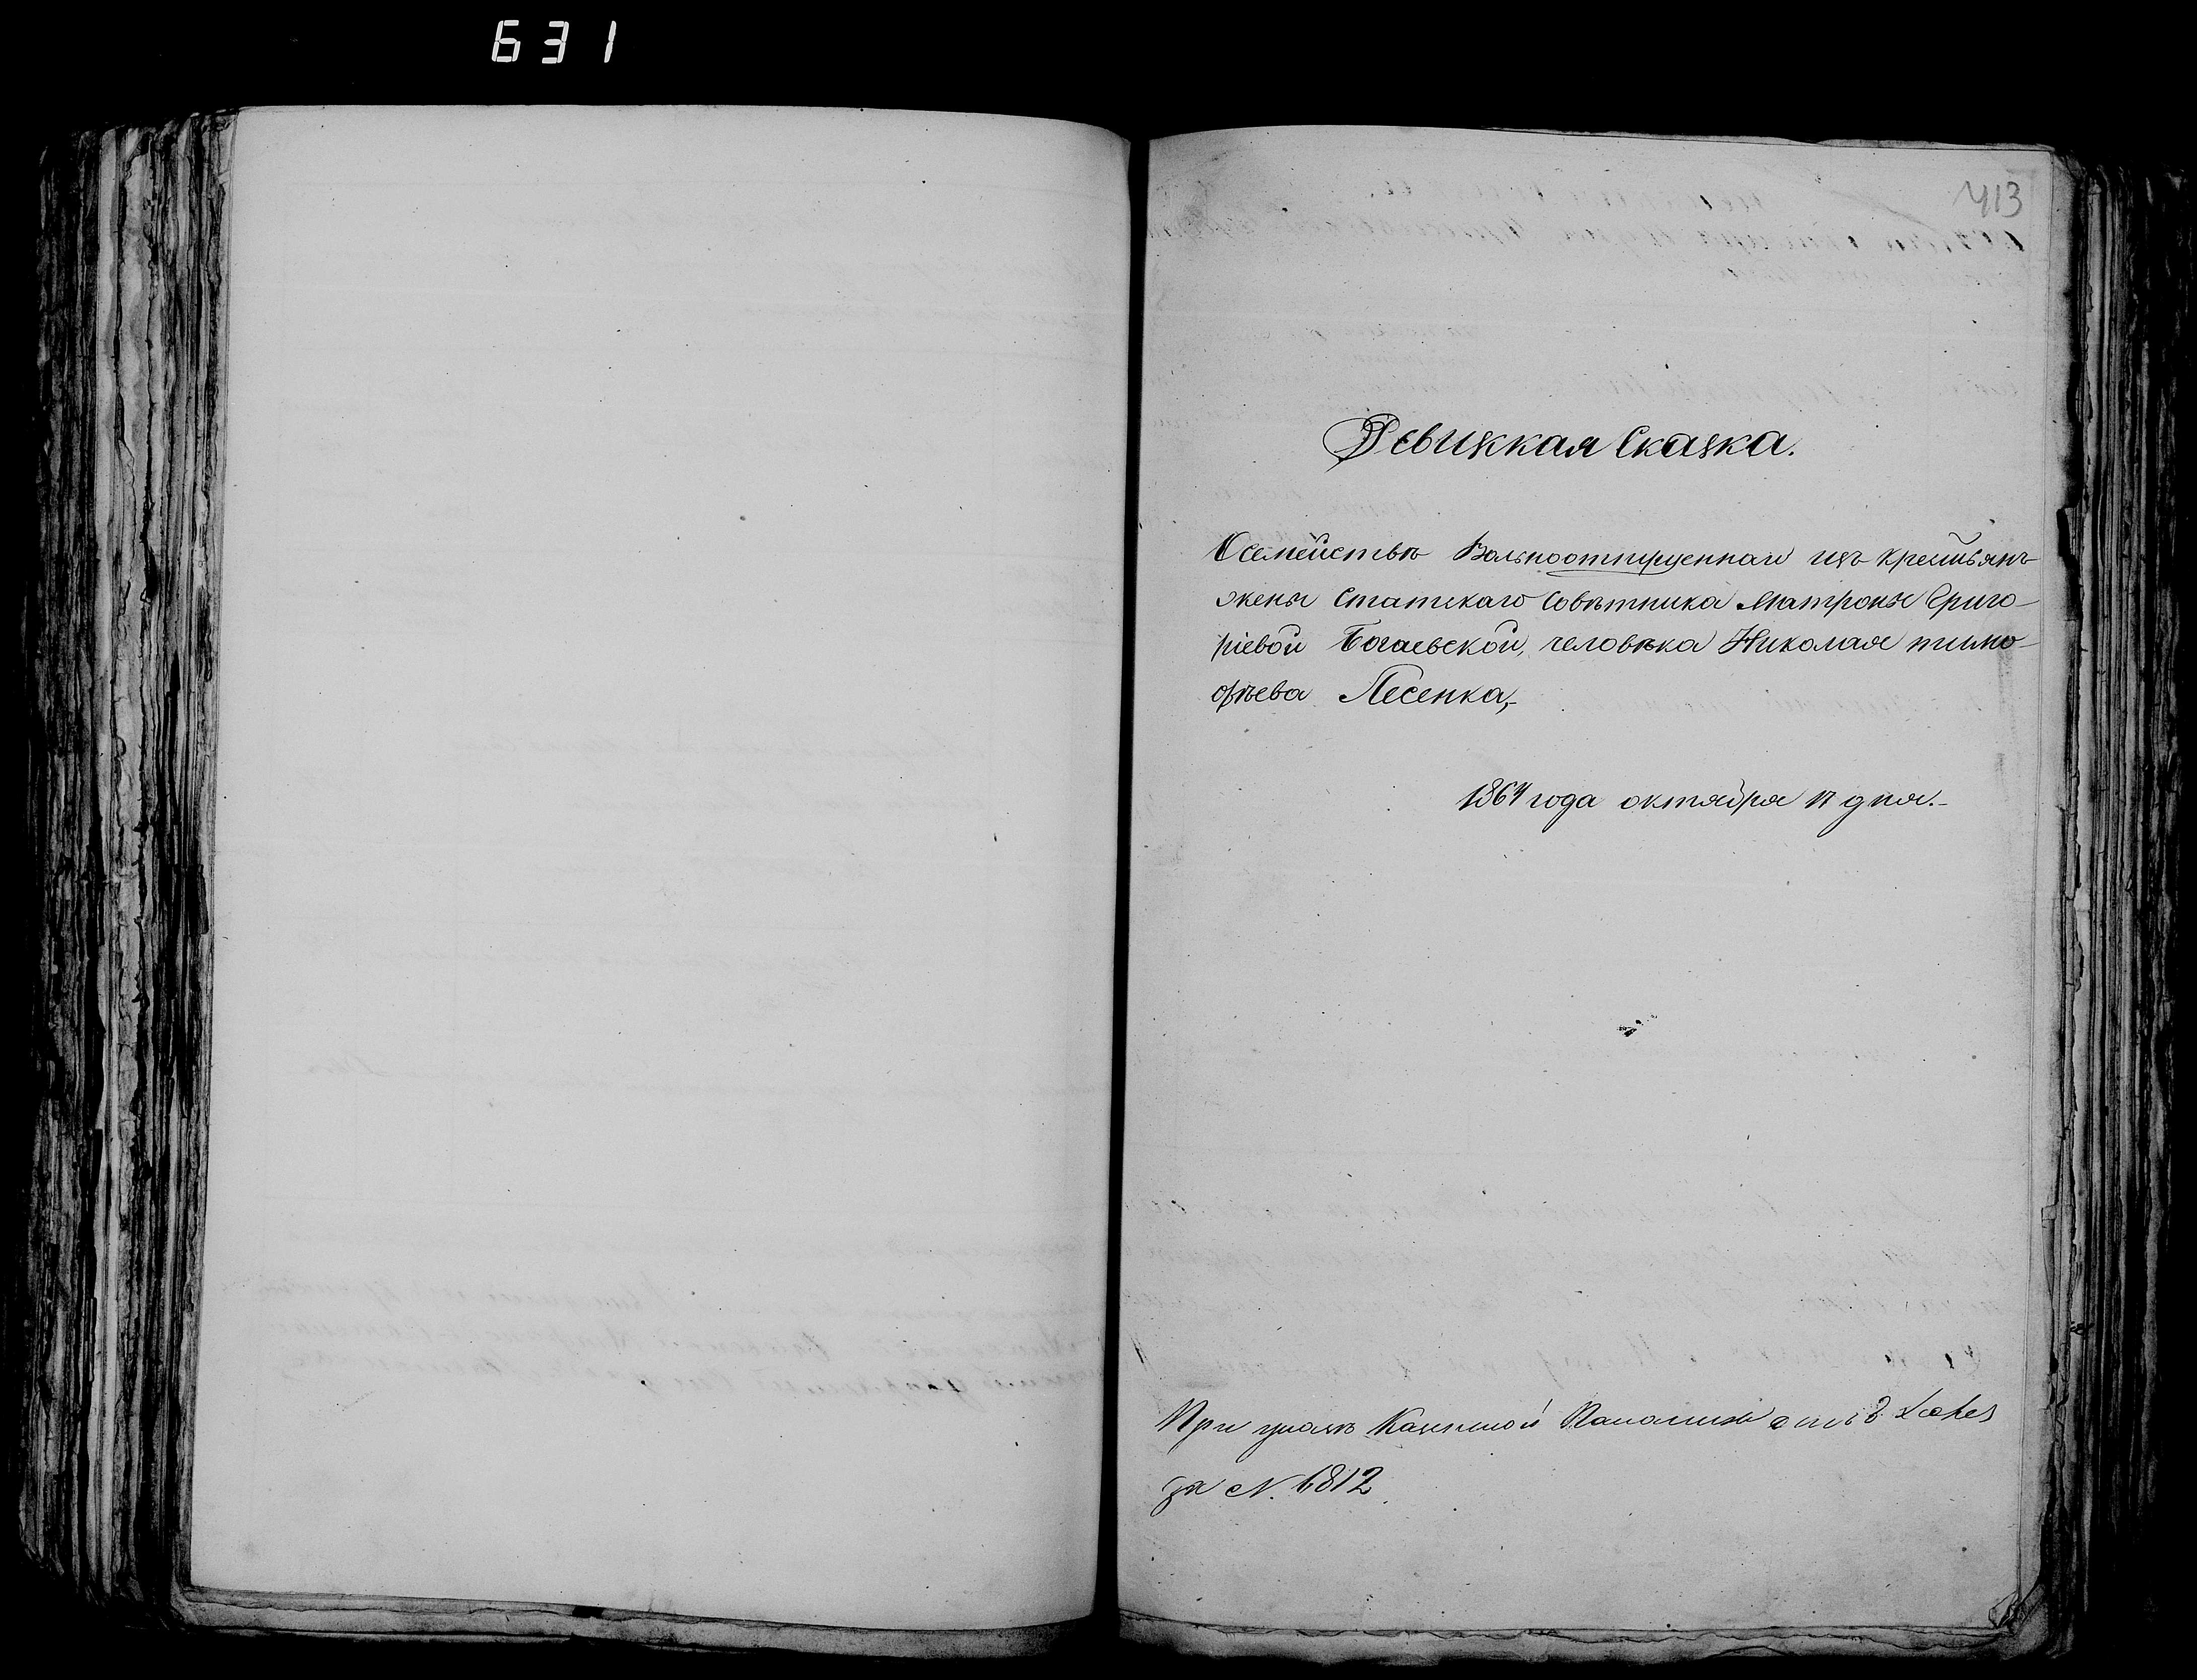 631
413
Ревизкая Сказка.
О семействѣ Вольноотпущенная изъ крестьянъ
жены Статскаго Совѣтника Матроны Григо-
ріевой Богаевской, человѣка Николая тимо-
фѣева Лесенка,
1864 года октября 17 дня.
При указѣ Казенной Палаты отъ
за N. 6812